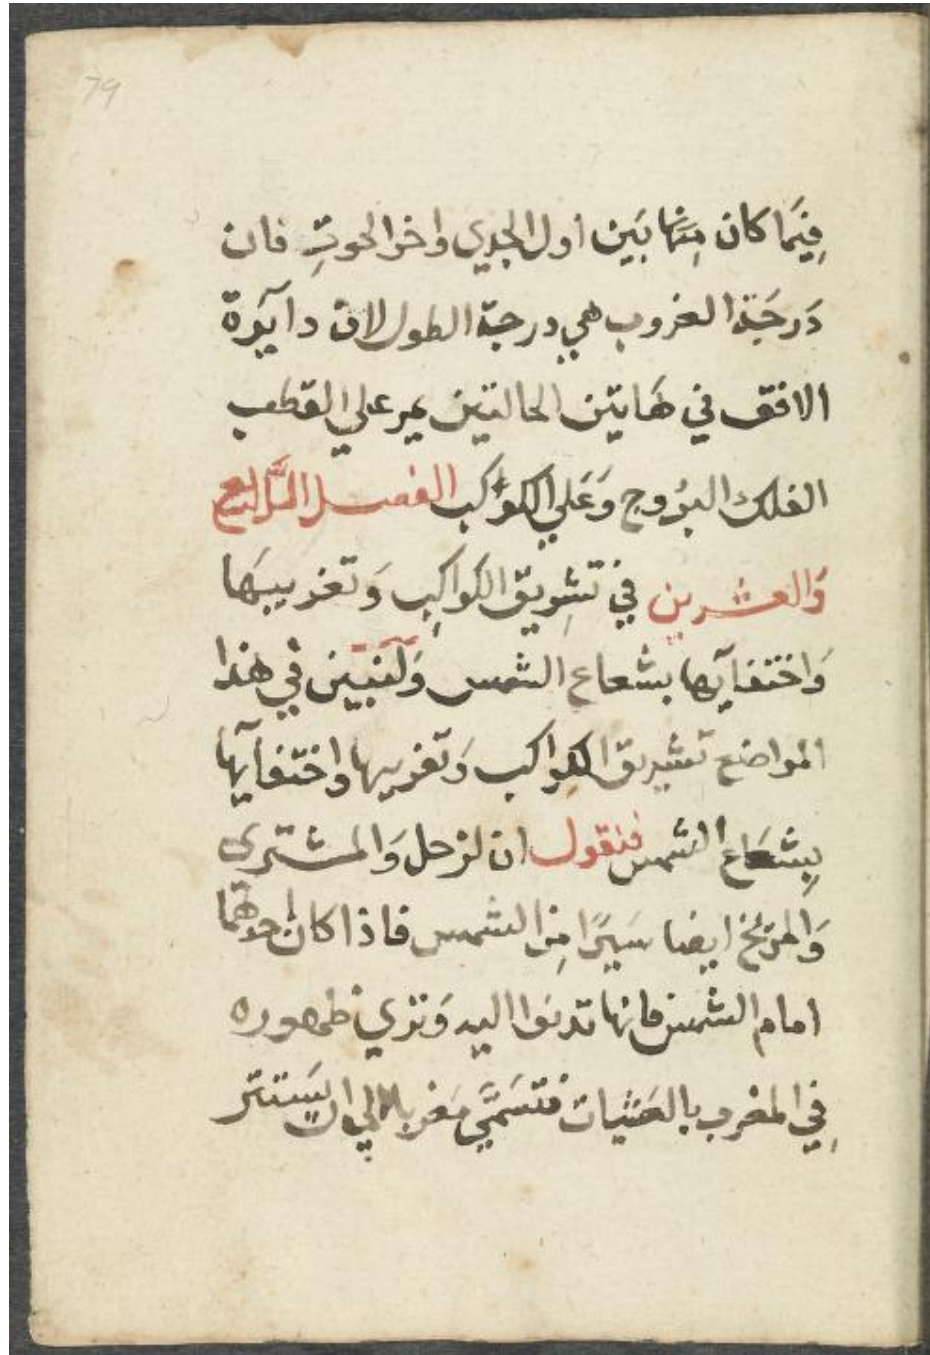 79
فِيَما كان مِنها بَين اول الجدي واخر الحوتِ فان
دَرجَة الغروب هي درجة الطول لان دآيرة
الافق في هَاتين الحالتين يمر علي القطب
الفلك البرُوج وَعَلي الكواكب الفصل الرَّابع
وَالعشرين في تشِريق الكواكِب وَتغريبهَا
وَاختفآيها بشعاع الشمس وَلنبين في هذا
المواضع تشريق الكواكب وَتغريبها واختفآيها
بِشعَاع الشمس فنقول ان لزحل وَالمشتري
وَالمريخ ايضا سَيرًا مِن الشمس فاذا كان احدهما
امام الشمس فانها تدنوا اليه وَتري ظهوره
فِي المغرب بالعَشيات فتسَمَّي مَغربا الي ان يَستتر